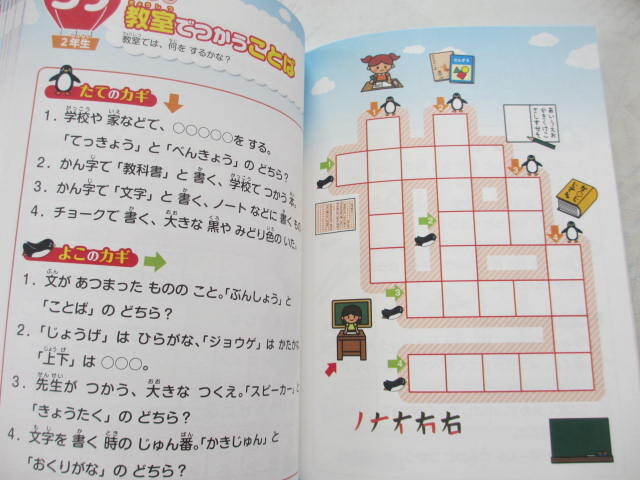 教室でつかうことば
2年生
教室では、何を するかな？
たてのカギ
1. 学校や 家などで、○○○○○を する。
「てっきょう」と「べんきょう」の どちら？
2. かん字で「教科書」と 書く、学校で つかう 本。
3. かん字で「文字」と 書く、ノートなどに 書くもの
4. チョークで 書く、大きな 黒や みどり色の いた。
よこのカギ
1. 文が あつまった ものの こと。「ぶんしょう」と
「ことば」の どちら？
2. 「じょうげ」は ひらがな、「ジョウゲ」は カタカ
「上下」は ○○○。
3. 先生が つかう、大きな つくえ。「スピーカー」と
「きょうたく」の どちら？
4. 文字を 書く 時の じゅん番。「かきじゅん」と
「おくりがな」の どちら？
1
2
あいうえお
かきくけこ
さしすせそ
1
3
2
4
3
4
ノナオ右右